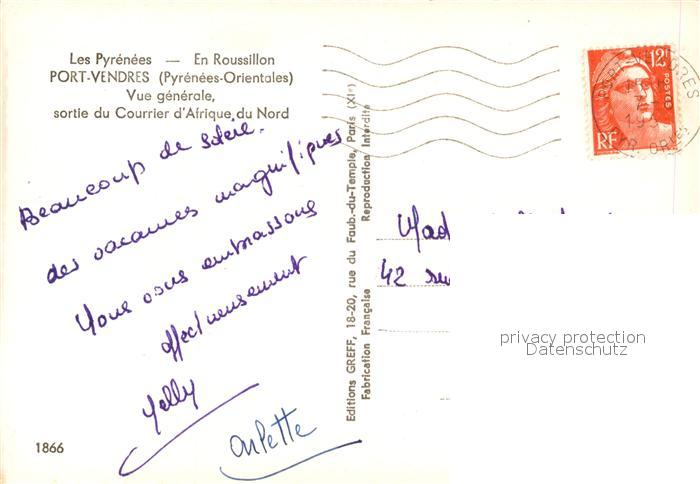 Les Pyrénées — En Roussillon
PORT-VENDRES (Pyrénées-Orientales)
Vue générale,
sortie du Courrier d'Afrique du Nord
Beaucoup de soleil.
des vacances magnifiques
Nous vous embrassons
affectueusement
Nelly
Arlette
1866
Editions GREFF, 18-20, rue du Faub.-du-Temple, Paris (XIe)
Fabrication Française Reproduction Interdite
12F
POSTES
RF
Mad
42 rue
privacy protection
Datenschutz